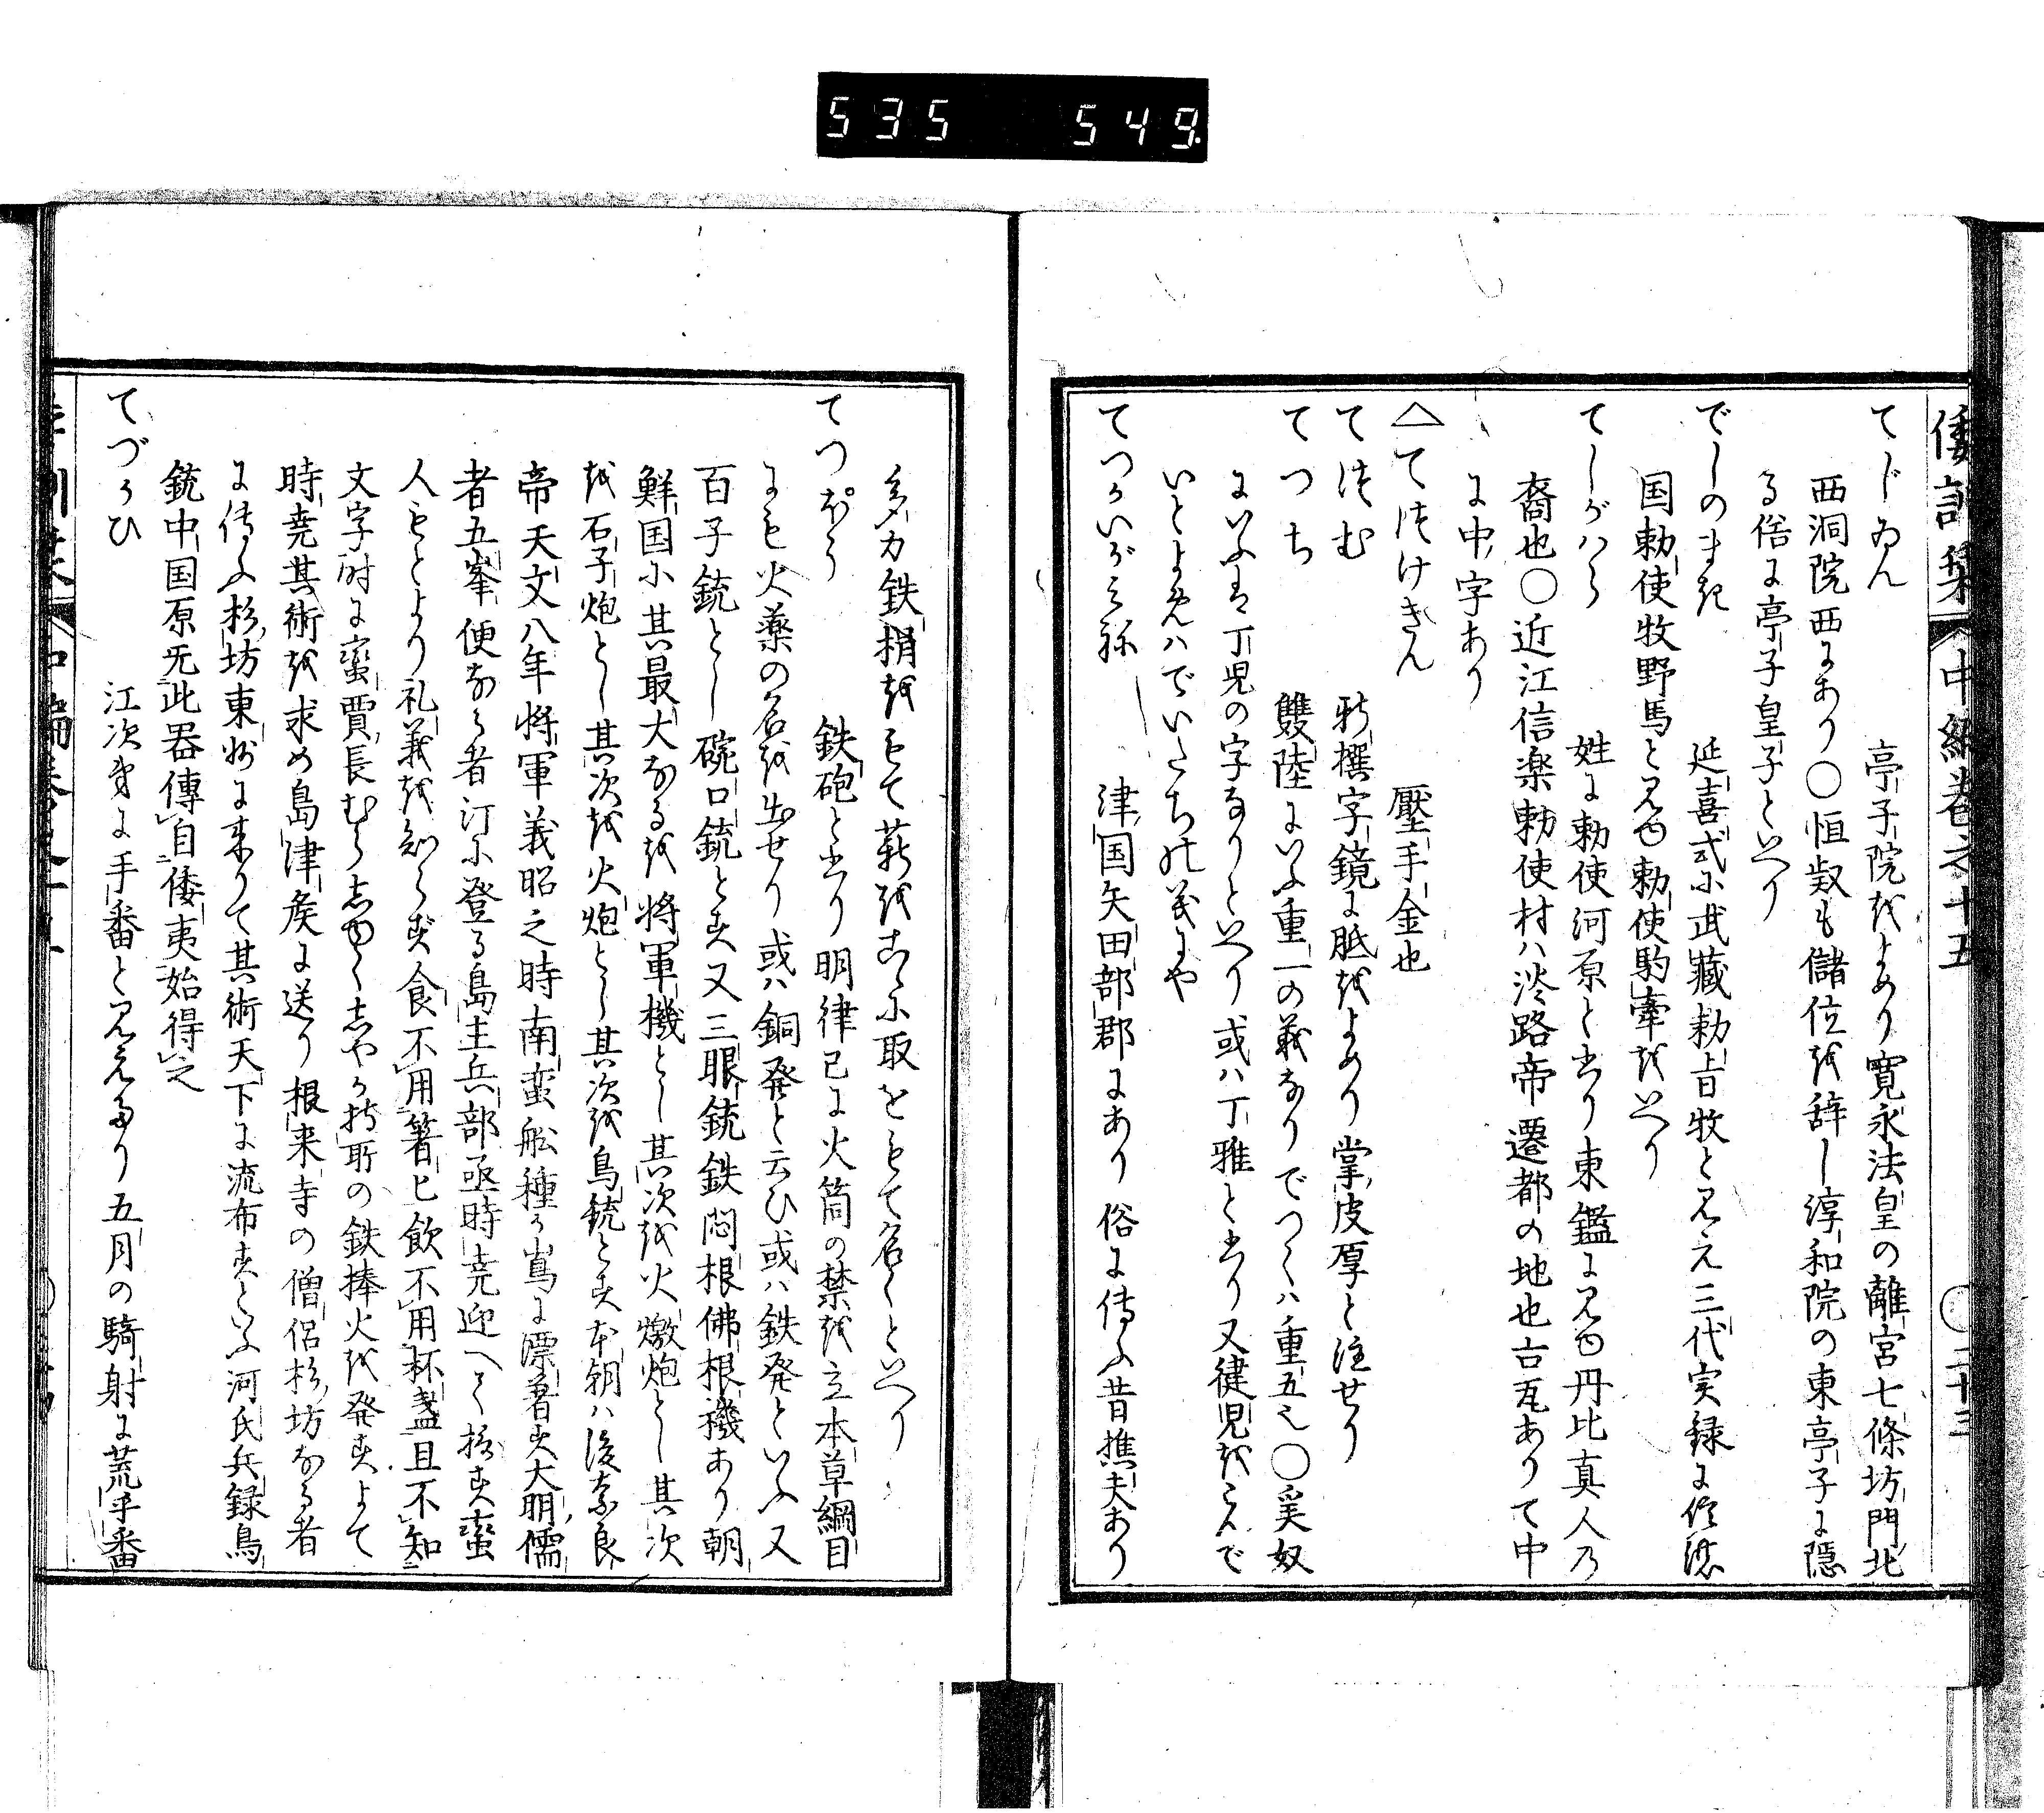 535 549.
倭訓栞 中編巻之十五 ○二十三
てじゐん 亭子院をよめり寛永法皇の離宮七條坊門北
西洞院西にあり○恒貞も儲位を辞し淳和院の東亭子に隠
る俗に亭子皇子といへり
でしのまき 延喜式に武蔵勅旨牧と見え三代実録に信濃
国勅使牧野馬と見ゆ勅使駒牽をいへり
てしがハら 姓に勅使河原と書り東鑑に見ゆ丹比真人乃
裔也○近江信楽勅使村ハ淡路帝遷都の地也古瓦ありて中
に中字あり
△てつけきん 壓手金也
てつむ 新撰字鏡に胝をよめり掌皮厚と注せり
てつち 雙陸にいふ重一の義なりでつくハ重五也○奚奴
にいふハ丁児の字なりといへり或ハ丁雅と書り又健児をこんで
いとよめハでいたち乃義にや
てつかいがミね 津国矢田部郡にあり俗に傳ふ昔樵夫あり
多力鉄梢をもて薪をあふに取をもて名くといへり
てつぱう 鉄砲と書り明律已に火筒の禁を立本草綱目
にも火薬の名を出せり或ハ銅発と云ひ或ハ鉄発といふ又
百子銃とし碗口銃とす又三眼銃鉄悶根佛根機あり朝
鮮国に其最大なるを将軍機とし其次を火燉炮とし其次
を石子炮とし其次を火炮とし其次を鳥銃とす本朝ハ後奈良
帝天文八年将軍義昭之時南蛮舩種か嶌に漂着す大明儒
者五峯便なる者汀に登る島主兵部丞時尭迎へて接す蛮
人もとより礼義を知らす食不用箸匕飲不用杯盞且不知
文字時に蛮賈長むらしゆくしやか持所の鉄棒火を発すよて
時尭其術を求め島津侯に送り根来寺の僧侶杉坊なる者
に傳ふ杉坊東州に来りて其術天下に流布すといふ河氏兵録鳥
銃中国原无此器傳自倭夷始得之
てづかひ 江次第に手番と見えたり五月の騎射に荒手番